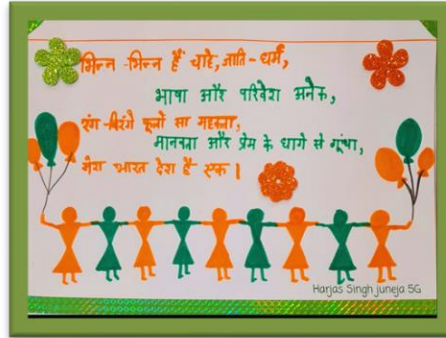 भिन्न -भिन्न हैं चाहे, जाति - धर्म,
भाषा और परिवेश अनेक,
रंग -बिरंगे फूलों सा महकता,
मानवता और प्रेम के धागे से गूंथा,
मेरा भारत देश है एक ।
Harjas Singh juneja 5G